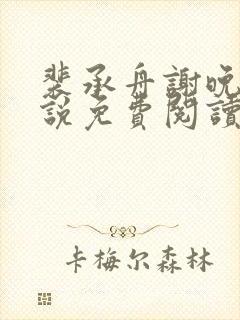 裴承舟謝晚
說免費閱讀
卡梅尔森林